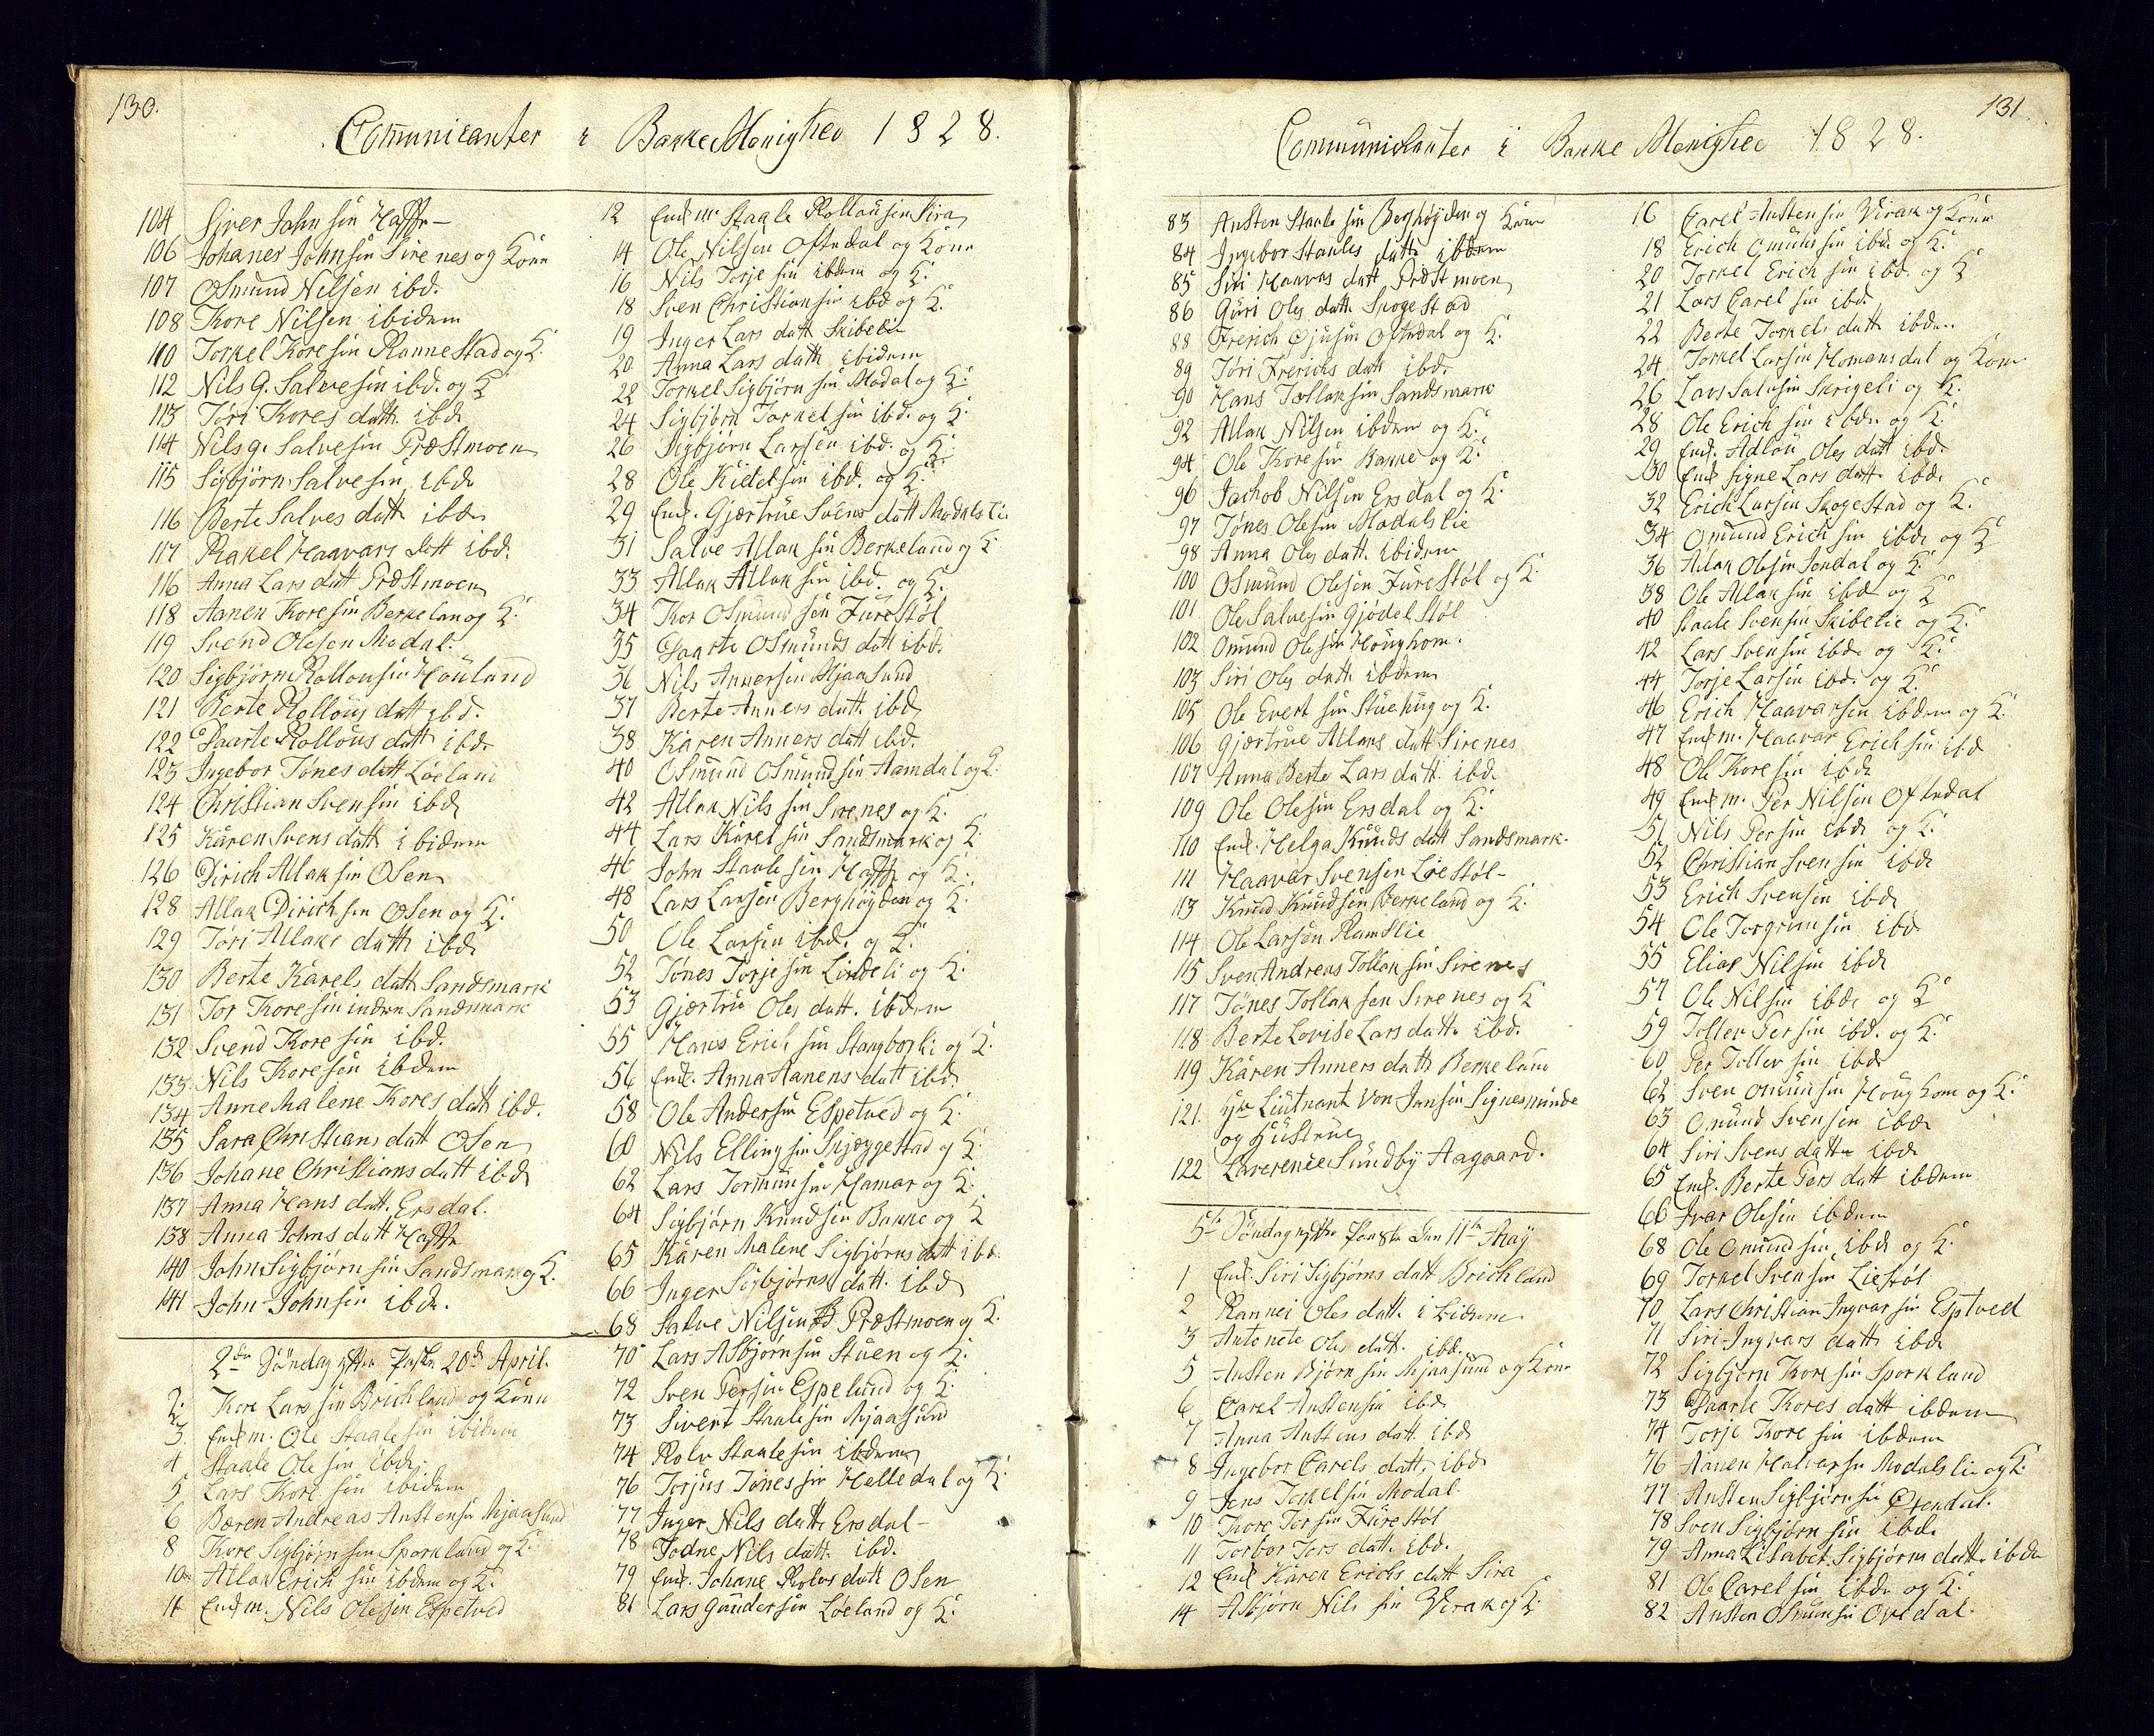 130.
Communicanter i Bakke Menighed 1828.
104 Siver John sin Haffte
106 Johanes John sin Sirenes og Kone
107 Osmund Nilsen ibd.
108 Kore Nilsen ibidem
110 Torkel Kore sin Rannestad og K.
112 Nils G. Salvesin ibd. og K
113 Tøri Kores datt. ibd
114 Nils g. Salvesin Præstmoen
115 Sigbjørn Salvesin ibd
116 Berte Salves datt ibd
117 Rakel Haavars datt ibd.
116 Anna Lars datt Præstmoen
118 Aanen Koresin Berkelan og K.
119 Svend Olesen Modal.
120 Sigbjørn Rollousin Houland
121 Berte Rollous datt ibd.
122 Daarte Rollous datt ibd
123 Ingebor Tønes datt Løeland
124 Christian Svensin ibd
125 Karen Svens datt ibidem
126 Dirich Allaksin Osen
128 Allak Dirich sin Osen og K.
129 Tøri Allaks datt ibd
130 Berte Karels datt Sandsmark
131 Tor Koresin indre Sandsmark
132 Svend Kore sin ibd.
133 Nils Koresen ibdem
134 Anne Malene Kores datt ibd.
135 Sara Christians datt Osen
136 Johane Christians datt ibd
137 Anna Hans datt. Ersdal.
138 Anna Johns datt Haffte
140 John Sigbjørn sin Sandsmark og K.
141 John Johnsin ibd.
2den Søndag efter Paaske 20de April.
2. Kore Lars sin Brichland og Kone
3. Enkm. Ole Staalesin ibidem
4 Staale Ole sin ibd.
5 Lars Kore sin ibidem
6 Bæren Andreas Austensin Mjaasund
8 Kore Sigbjørnsin Sporkland og K.
10 Allak Erich sin ibdem og K.
11 Enkm. Nils Olesin Espetved
12 Enkm Staale Rollousin Sira
14 Ole Nilsen Oftedal og Kone
16 Nils Torje sin ibdem og K.
18 Sven Christiansin ibd og K.
19 Inger Lars datt Skibeli
20 Anna Lars datt ibidem
22 Torkel Sigbjørn sin Modal og K.
24 Sigbjørn Torkelsin ibd. og K.
26 Sigbjørn Larsen ibd. og K.
28 Ole Kittelsin ibd. og K.
29 Enk. Gjertrue Svens datt Modalslie
31 Salve Allak sin Berkeland og K
33 Allak Allak sin ibd. og K.
34 Kor Osmund sin Furestøl
35 Daarte Osmunds datt ibd.
36 Nils Annersin Mjaasund
37 Berte Anners datt. ibd
38 Karen Anners datt ibd.
40 Osmund Osmund sin Aamdal og K.
42 Allak Nils sin Sirenes og K.
44 Lars Karel sin Sandsmark og K
46 John Staale sin Haffte og K.
48 Lars Larsen Berghøyden og K.
50 Ole Larsen ibd. og K.
52 Tønes Torjesin Lindeli og K.
53 Gjertrue Oles datt. ibdem
55 Hans Erich sin Stangborli og K.
56 Enk. Anna Aanens datt ibd.
58 Ole Andersin Espetved og K.
60 Nils Elling sin Skjeggestad og K.
62 Lars Tormunsin Hamar og K.
64 Sigbjørn Knudsin Bakke og K
65 Karen Malene Sigbjørns datt ibd.
66 Inger Sigbjørns datt. ibd
68 Salve Nilsen Præstmoen og K.
70 Lars Asbjørnsin Stuen og K.
72 Sven Persin Espelund og K.
73 Sivert Staalesin Mjaasund
74 Rolv Staalesin ibdem
76 Torjus Tønessin Helledal og K.
77 Inger Nils datt Ersdal
78 Jodne Nils datt. ibd.
79 Enk. Johane Rolvs datt Osen
81 Lars Gundersin Løeland og K.
131.
Communicanter i Bakke Menighed 1828.
83 Austen Staale sin Berghøyden og Kone
84 Ingebor Staales datt. ibdem
85 Siri Haavars datt Præstmoen
86 Guri Oles datt. Skogestad
88 Frerich Gjusin Oftedal og K.
89 Tøri Frerichs datt ibd.
90 Hans Tollaksin Sandsmark
92 Allak Nilsen ibdem og K.
94 Ole Koresin Bakke og K.
96 Jachob Nilsen Ersdal og K.
97 Tønes Olesen Modalslie
98 Anna Oles datt. ibidem
100 Osmund Olesen Furestøl og K.
101 Ole Salvesin Gjødelstøl
102 Omund Olesin Houghom.
103 Siri Oles datt. ibdem
105 Ole Evert sin Stuehug og K.
106 Gjertrue Allaks datt Sirenes
107 Anna Berte Lars datt. ibd.
109 Ole Olesin Ersdal og K.
110 Enk. Helga Knuds datt Sandsmark.
111 Haavar Svensen Liestøl
113 Knud Knudsen Berkeland og K.
114 Ole Larsen Ramslie
115 Sven Andreas Tollak sin Sirenes
117 Tønes Tollak sen Sirenes og K
118 Berte Lovise Lars datt. ibd.
119 Karen Anners datt Berkeland
121. Hr Liutnant von Jansin Signesminde
og Hustrue
122 Laverence Sundby Aagaard.
5te Søndag efter Paaske den 11te May
1 Enk. Siri Sigbjørns datt Brichland
2 Rannei Oles datt. ibidem
3 Antonete Oles datt. ibd.
5 Austen Bjørn sin Mjaasund og Kone
6 Carel Austensin ibd
7 Anna Austens datt. ibd
8 Ingebor Carels datt. ibd
9 Jens Torkelsin Modal.
10 Kore Torsin Furestøl
11 Torbor Tors datt. ibd.
12 Enk Karen Erichs datt Sira
14 Asbjørn Nils sin Virak og K.
16 Carel Austensin Virak og Kone
18 Erich Omunssin ibd. og K.
20 Torkel Erich sin ibd. og K
21 Lars Carel sin ibd
22 Berte Torkels datt ibdem
24 Torkel Larsin Homansdal og Kone
26 Lars Salvesin Skrigeli og K.
28 Ole Erich sin ibdm og K.
29 Enk. Adlou Oles datt ibd.
30 Enk Signe Lars datt. ibd.
32 Erich Larsin Skogestad og K.
34 Omund Erich sin ibd. og K
36 Allak Olesin Jondal og K.
38 Ole Allaksin ibd og K
40 Staale Svensin Skibelie og K.
42 Lars Svensin ibd. og K.
44 Torje Larsin ibd. og K.
46 Erich Haavarsin ibdem og K.
47 Enkm. Haavar Erich sin ibd
48 Ole Koresin ibd.
49 Enkm. Per Nilsen Oftedal
51 Nils Persin ibd. og K.
52 Christian Svensin ibd
53 Erich Svensen ibd
54 Ole Torgrimsin ibd
55 Elias Nilsin ibd
57 Ole Nilsin ibd. og K.
59 Tollev Persin ibd. og K.
60 Per Tollevsin ibd
62 Sven Omunsin Houghom og K.
63 Omund Svensen ibd
64 Siri Svens datt. ibd
65 Enk. Berte Pers datt ibdem
66 Ivar Olesin ibdem
68 Ole Omundsin ibd og K.
69 Torkel Svensin Liestøl
70 Lars Christian Ingvarsin Esptved
71 Siri Ingvars datt ibd
72 Sigbjørn Koresin Sporkland
73 Daarte Kores datt ibdem
74 Torje Kore sin ibdem
76 Aanen Halvarsin Modalslie og K.
77 Austen Sigbjørnsin Øvendal.
78 Sven Sigbjørn sin ibd.
79 Anna Lisabet Sigbjørns datt. ibdm
81 Ole Carelsin ibdm og K.
82 Austen Osmunsin Ovedal.